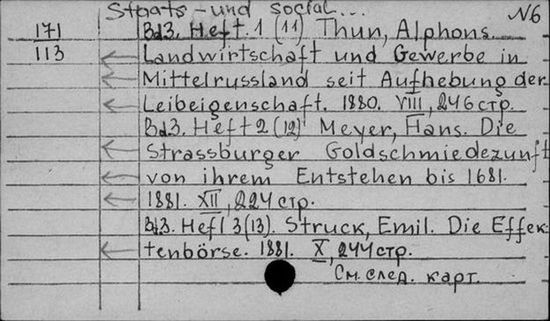 Staats-und social... №6
171 Bd3. Heft.1 (11) Thun, Alphons.
113 Landwirtschaft und Gewerbe in
Mittelrussland seit Aufhebung der
Leibeigenschaft. 1880. VIII, 246 стр.
Bd3. Heft 2 (12) Meyer, Hans. Die
Strassburger Goldschmiedezunft
von ihrem Entstehen bis 1681.
1881. XII, 224 стр.
Bd3. Heft 3(13). Struck, Emil. Die Effek-
tenbörse. 1881. X, 244 стр.
См. след. карт.